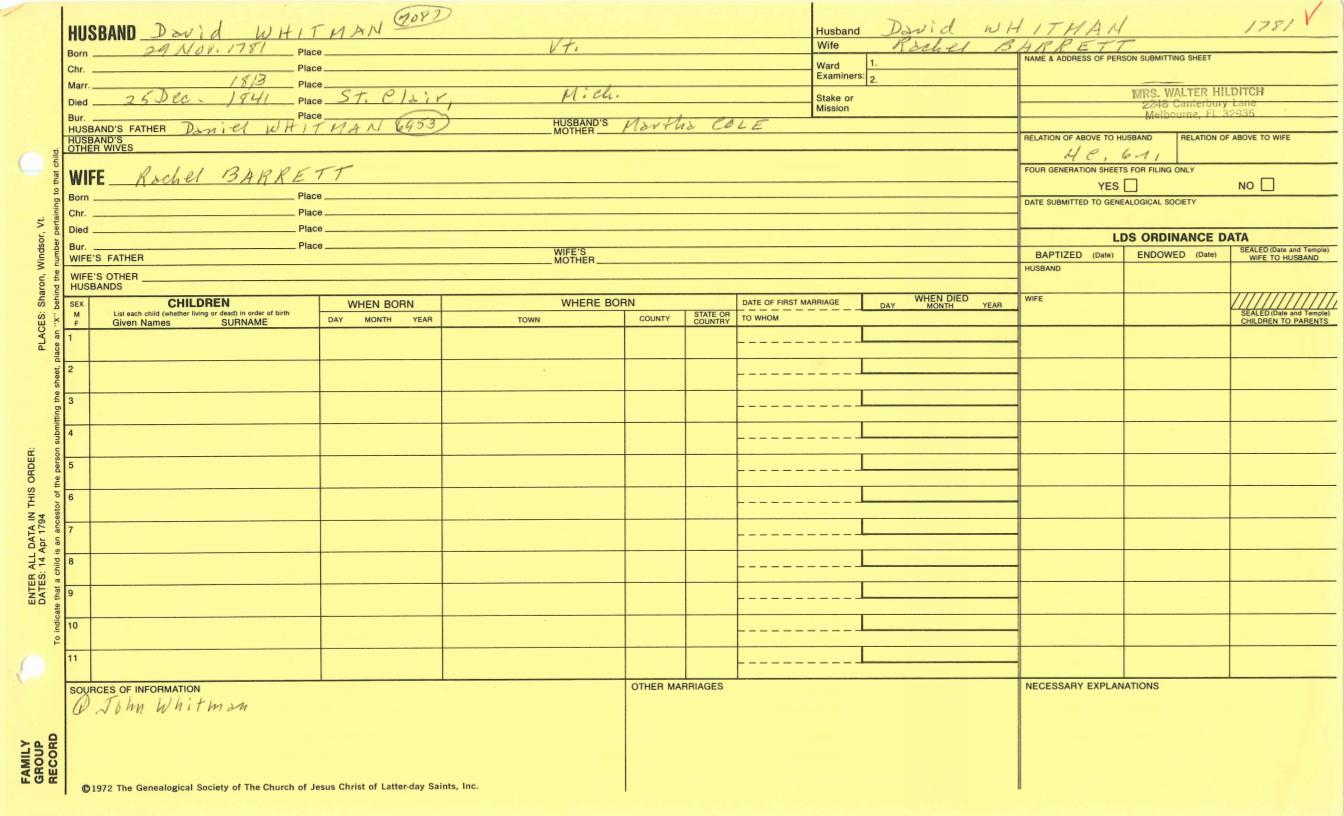 HUSBAND David WHITMAN 7087
Born 29 Nov. 1781 Place Vt.
Chr. Place
Marr. 1813 Place
Died 25 Dec. 1841 Place St. Clair, Mich.
Bur. Place
HUSBAND'S FATHER Daniel WHITMAN 6453 HUSBAND'S MOTHER Martha COLE
HUSBAND'S OTHER WIVES
WIFE Rachel BARRETT
Born Place
Chr. Place
Died Place
Bur. Place
WIFE'S FATHER WIFE'S MOTHER
WIFE'S OTHER HUSBANDS
Husband David WHITMAN 1781
Wife Rachel BARRETT
Ward Examiners: 1.
2.
Stake or Mission
NAME & ADDRESS OF PERSON SUBMITTING SHEET
MRS. WALTER HILDITCH
2248 Canterbury Lane
Melbourne, FL 32935
RELATION OF ABOVE TO HUSBAND RELATION OF ABOVE TO WIFE
FOUR GENERATION SHEETS FOR FILING ONLY
YES NO
DATE SUBMITTED TO GENEALOGICAL SOCIETY
LDS ORDINANCE DATA
BAPTIZED (Date) ENDOWED (Date) SEALED (Date and Temple) WIFE TO HUSBAND
HUSBAND
WIFE
SEALED (Date and Temple) CHILDREN TO PARENTS
SEX M F
CHILDREN
List each child (whether living or dead) in order of birth
Given Names SURNAME
WHEN BORN
DAY MONTH YEAR
WHERE BORN
TOWN COUNTY STATE OR COUNTRY
DATE OF FIRST MARRIAGE
TO WHOM
WHEN DIED
DAY MONTH YEAR
1
2
3
4
5
6
7
8
9
10
11
SOURCES OF INFORMATION
① John Whitman
OTHER MARRIAGES
NECESSARY EXPLANATIONS
©1972 The Genealogical Society of The Church of Jesus Christ of Latter-day Saints, Inc.
FAMILY GROUP RECORD
ENTER ALL DATA IN THIS ORDER:
DATES: 14 Apr 1794 PLACES: Sharon, Windsor, Vt.
To indicate that a child is an ancestor of the person submitting the sheet, place an "X" behind the number pertaining to that child.